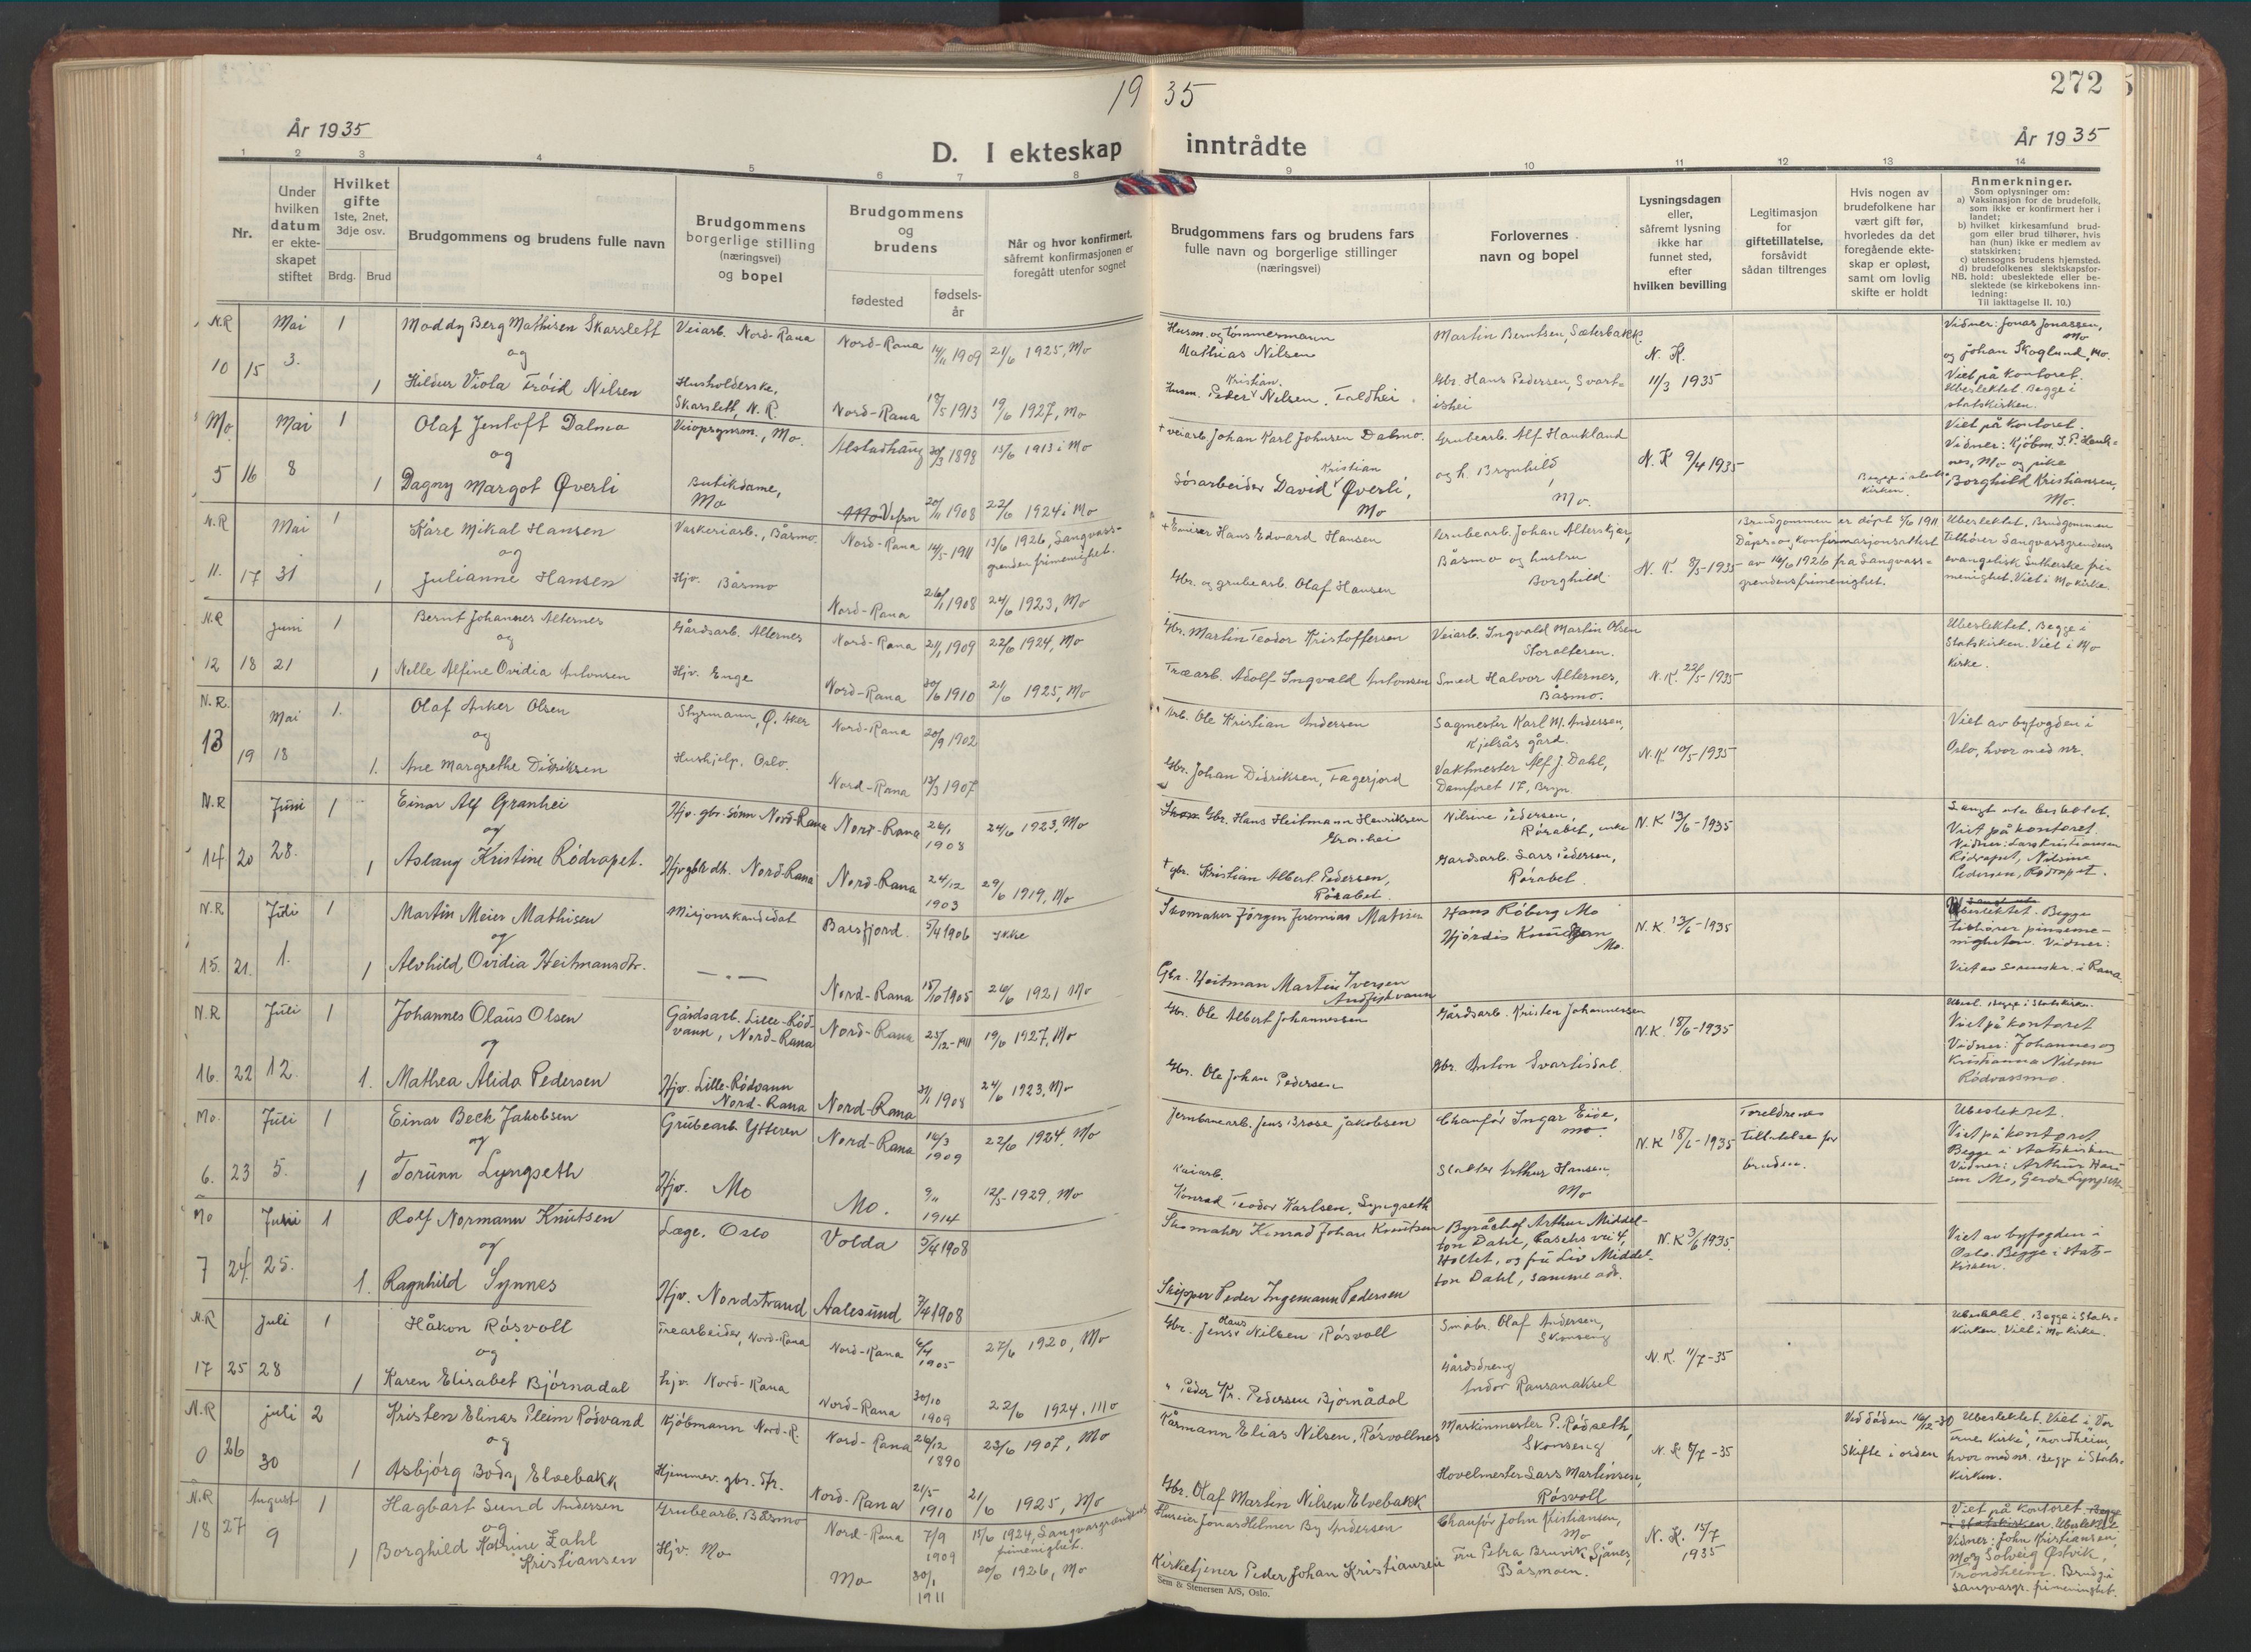 19 35
272
År 1935
D. I ekteskap inntrådte
År 1935
1 2 3 4 5 6 7 8 9 10 11 12 13 14
Nr.
Under hvilken datum er ekteskapet stiftet
Hvilket gifte
1ste, 2net, 3dje osv.
Brdg. Brud
Brudgommens og brudens fulle navn
Brudgommens borgerlige stilling (næringsvei) og bopel
Brudgommens og brudens
fødested
fødselsår
Når og hvor konfirmert, såfremt konfirmasjonen er foregått utenfor sognet
Brudgommens fars og brudens fars fulle navn og borgerlige stillinger (næringsvei)
Forlovernes navn og bopel
Lysningsdagen eller, såfremt lysning ikke har funnet sted, efter hvilken bevilling
Legitimasjon for giftetillatelse, forsåvidt sådan tiltrenges
Hvis nogen av brudefolkene har vært gift før, hvorledes da det foregående ekteskap er opløst, samt om lovlig skifte er holdt
Anmerkninger.
Som oplysninger om:
a) Vaksinasjon for de brudefolk, som ikke er konfirmert her i landet;
b) hvilket kirkesamfund brudgom eller brud tilhører, hvis han (hun) ikke er medlem av statskirken;
c) utensogns brudens hjemsted.
d) brudefolkenes slektskapsforhold: ubeslektede eller beslektede (se kirkebokens innledning:
NB. Til iakttagelse II. 10.)
N.R Mai 1 Moddy Berg Mathisen Skarslett Veiarb. Nord-Rana Nord-Rana 14/11 1909 21/6 1925, Mo
og
10 15 3. 1 Hildur Viola Frøid Nilsen Husholderske, Skarslett, N.R. Nord-Rana 19/5 1913 19/6 1927, Mo
Husm. og tømmermann Mathias Nilsen
Martin Berntsen, Sæterbakk.
Husm. Peder Kristian Nilsen. Foldhei
Gbr. Hans Pedersen, Svartishei
N. K. 11/3 1935
Vidner: Jonas Jonassen, Mo
og Johan Skoglund, Mo.
Viet på kontoret.
Ubeslektet. Begge i
statskirken.
Mo Mai 1 Olaf Jentoft Dalmo Veiopsynsm., Mo. Alstadhaug 30/3 1898 15/6 1913 i Mo
og
5 16 8 1 Dagny Margot Øverli Butikdame, Mo Vefsn 20/11 1908 22/6 1924 i Mo
+ veiarb. Johan Karl Johnsen Dalmo.
Grubearb. Alf Haukland
Gåsarbeider David Kristian Øverli, Mo
og h. Brynhild, Mo.
N. K 9/4 1935
Begge i statskirken.
Viet på kontoret.
Vidner: Kjøbm. S. P. Hauknes, Mo og pike
Borghild Kristiansen,
Mo.
N.R Mai 1 Kåre Mikal Hansen Vaskeriarb., Båsmo. Nord-Rana 14/5-1911 13/6 1926, Langvassgrenden frimenighet.
og
11. 17 31 1 Julianne Hansen Hjv. Båsmo Nord-Rana 26/1 1908 24/6 1923, Mo
+ Emisær Hans Edvard Hansen
Grubearb. Johan Alterskjær,
Båsmo og hustru
Borghild
Gbr. og grubearb. Olaf Hansen
N. K. 8/5-1935
Brudgommen er døpt 5/6 1911
Dåps- og konfirmasjonsattest
av 16/6 1926 fra Langvassgrendens frimenighet.
Ubeslektet. Brudgommen
tilhører Langvassgrendens
evangelisk lutherske frimenighet. Viet i Mo kirke.
N.R Juni 1 Bernt Johannes Alternes Gårdsarb. Alternes Nord-Rana 21/1 1909 22/6 1924, Mo
og
12 18 21 1 Nelle Alfine Ovidia Antonsen Hjv. Enge Nord-Rana 30/6 1910 21/6 1925, Mo
Gbr. Martin Teodor Kristoffersen
Veiarb. Ingvald Martin Olsen
Storalteren.
Træarb. Adolf Ingvald Antonsen
Smed Halvor Alternes,
Båsmo.
N. K. 22/5-1935
Ubeslektet. Begge i
Statskirken. Viet i Mo
kirke.
N.R. Mai 1. Olaf Anker Olsen Styrmann, Ø. Aker Nord-Rana 20/9 1902
og
13 19 18 1. Ane Margrethe Didriksen Hushjelp. Oslo. Nord-Rana 13/3 1907
Arb. Ole Kristian Andersen
Sagmester Karl M. Andersen,
Kjelsås gård.
Gbr. Johan Didriksen, Fagerjord
Vaktmester Alf J. Dahl,
Damfaret 17, Bryn.
N.K. 10/5-1935
Viet av byfogden i
Oslo, hvor med nr.
N.R Juni 1 Einar Alf Granhei Hjv. gbr. sønn Nord-Rana Nord-Rana 26/1 1908 24/6 1923, Mo
og
14 20 28. 1 Aslaug Kristine Rødrapet. Hjv gbr dt. Nord-Rana Nord-Rana 24/12 1903 29/6 1919, Mo
Gbr. Hans Heitmann Henriksen
Granhei
Nilsine Pedersen,
Røsabet, enke
+ gbr. Kristian Albert Pedersen,
Røsabet.
Gardsarb. Lars Pedersen,
Røsabet.
N. K 13/6-1935
Langt ute beslektet.
Viet på kontoret.
Vidner: Lars Kristiansen
Rødrapet, Nilsine
Pedersen, Rødrapet.
N.R Juli 1 Martin Meier Mathisen Misjonskandidat Barsfjord. 5/4 1906 ikke
og
15. 21. 1. 1 Alvhild Ovidia Heitmansdtr. —"— Nord-Rana 15/10 1905 26/6 1921 Mo
Skomaker Jørgen Jeremias Matisen
Hans Røberg Mo
Hjørdis Knudsen
Mo.
Gbr. Heitman Martin Iversen
Andfiskvann
N. K. 13/6-1935
Ubeslektet. Begge
tilhører pinsemenigheten. Vidner:
Viet av sorenskr. i Rana
N.R Juli 1 Johannes Olaus Olsen Gårdsarb. Lille-Rødvann, Nord-Rana Nord-Rana 25/12-1911 19/6 1927, Mo
og
16. 22 12. 1. Mathea Alida Pedersen Hjv. Lille-Rødvann Nord-Rana Nord-Rana 31/1 1908 24/6 1923, Mo
Gbr. Ole Albert Johannessen
Gårdsarb. Kristen Johannessen
Gbr. Ole Johan Pedersen
Gbr. Anton Svartisdal.
N.K. 18/6-1935
Ubesl. Begge i Statskirken.
Viet på kontoret
Vidner: Johannes og
Kristianna Nilsen
Rødvassmo.
Mo. Juli 1 Einar Beck Jakobsen Grubearb. Ytteren Nord-Rana 16/3 1909 22/6 1924, Mo
og
6. 23 5. 1 Torunn Lyngseth Hjv. Mo Mo. 9/11 1914 12/5-1929, Mo
Jernbanearb. Jens Brose Jakobsen
Chaufør Ingar Eide,
Mo.
Kaiarb.
Konrad Teodor Karlsen, Lyngseth
Slakter Arthur Hansen.
Mo
N. K 18/6-1935
Foreldrenes
tillatelse for
bruden.
Ubeslektet.
Viet på kontoret
Begge i statskirken
Vidner: Arthur Hansen Mo, Gerda Lyngseth
Mo Juni 1 Rolf Normann Knutsen Læge. Oslo Volda 5/4 1908
og
7 24. 25. 1. Ragnhild Synnes Hjv. Nordstrand Aalesund 7/4 1908
Skomaker Konrad Johan Knutsen
Byråchef Arthur Middelton Dahl, Kasehs vei 4,
Holtet, og fru Liv Middelton Dahl, samme adr.
Skipper Peder Ingemann Pedersen
N. K 3/6 1935.
Viet av byfogden i
Oslo. Begge i statskirken.
N.R Juli 1 Håkon Røsvoll Trearbeider, Nord-Rana Nord-Rana 6/4 1905 27/6 1920, Mo
og
17 25 28 1 Karen Elisabet Bjørnadal hjv. Nord-Rana Nord-Rana 30/10 1909 22/6 1924, Mo
Gbr. Jens Klaus Nilsen Røsvoll
Småbr. Olaf Andersen,
Skonseng
Gårdsdreng
Andor Ransanaksel
" Peder Kr. Pedersen Bjørnådal
N. K. 11/7-35
Ubeslektet. Begge i Statskirken. Viet i Mo kirke.
N.R Juli 2 Kristen Elinas Pleim Rødvand Kjøbmann Nord-R. Nord-Rana 26/12 1890 23/6 1907, Mo
og
0 26 30 1 Asbjørg Body Elvebakk Hjemmev. gbr. dtr. Nord-Rana 21/5 1910 21/6 1925, Mo
Kårmann Elias Nilsen, Røsvollnes
Maskinmester P. Rødseth,
Skonseng
Gbr. Olaf Martin Nilsen Elvebakk
Hovelmester Lars Martinsen,
Røsvoll
N. K. 8/7-35
Ved døden 16/12-30
Skifte i orden
Ubeslektet. Viet i "Vor
Frues Kirke", Trondheim,
hvor med nr. Begge i Statskirken.
N.R August 1 Hagbart Sund Andersen Grubearb. Båsmo Nord-Rana 7/9 1909 15/6 1924, Langvasgrendens frimenighet.
og
18 27 9 1 Borghild Katrine Zahl Kristiansen Hjv. Mo Mo 30/1 1911 20/6 1926, Mo
Huseier Jonas Hilmer By Andersen
Chaufør John Kristiansen,
Mo
Kirketjener Peder Johan Kristiansen
Fru Petra Bruvik Sjånes,
Båsmoen.
N. K. 15/7 1935
Viet på kontoret. Begge
i Statskirken. Ubeslektet
Vidner: John Kristiansen,
Mo og Solveig Østvik,
Trondheim. Brudg. i
Langvasgr. frimenighet.
Sem & Stenersen A/S, Oslo.